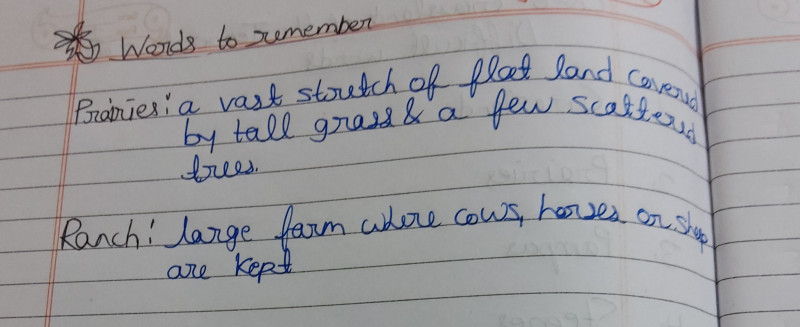 Words to remember
Prairies: a vast stretch of flat land covered
by tall grass & a few scattered
trees.
Ranch: large farm where cows, horses or sheep
are kept